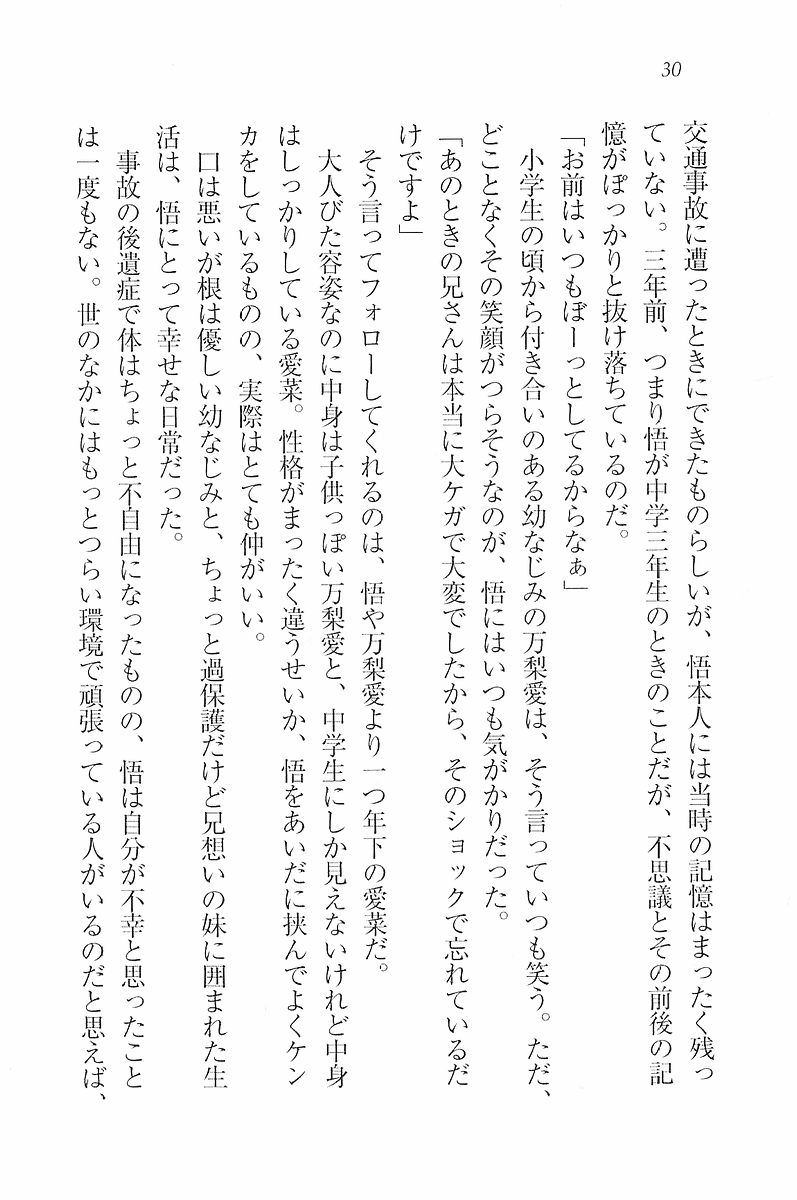 30
交通事故に遭ったときにできたものらしいが、悟本人には当時の記憶はまったく残っ
ていない。三年前、つまり悟が中学三年生のときのことだが、不思議とその前後の記
憶がぽっかりと抜け落ちているのだ。
「お前はいつもぼーっとしてるからなぁ」
小学生の頃から付き合いのある幼なじみの万梨愛は、そう言っていつも笑う。ただ、
どことなくその笑顔がつらそうなのが、悟にはいつも気がかりだった。
「あのときの兄さんは本当に大ケガで大変でしたから、そのショックで忘れているだ
けですよ」
そう言ってフォローしてくれるのは、悟や万梨愛より一つ年下の愛菜だ。
大人びた容姿なのに中身は子供っぽい万梨愛と、中学生にしか見えないけれど中身
はしっかりしている愛菜。性格がまったく違うせいか、悟をあいだに挟んでよくケン
カをしているものの、実際はとても仲がいい。
口は悪いが根は優しい幼なじみと、ちょっと過保護だけど兄想いの妹に囲まれた生
活は、悟にとって幸せな日常だった。
事故の後遺症で体はちょっと不自由になったものの、悟は自分が不幸と思ったこと
は一度もない。世のなかにはもっとつらい環境で頑張っている人がいるのだと思えば、